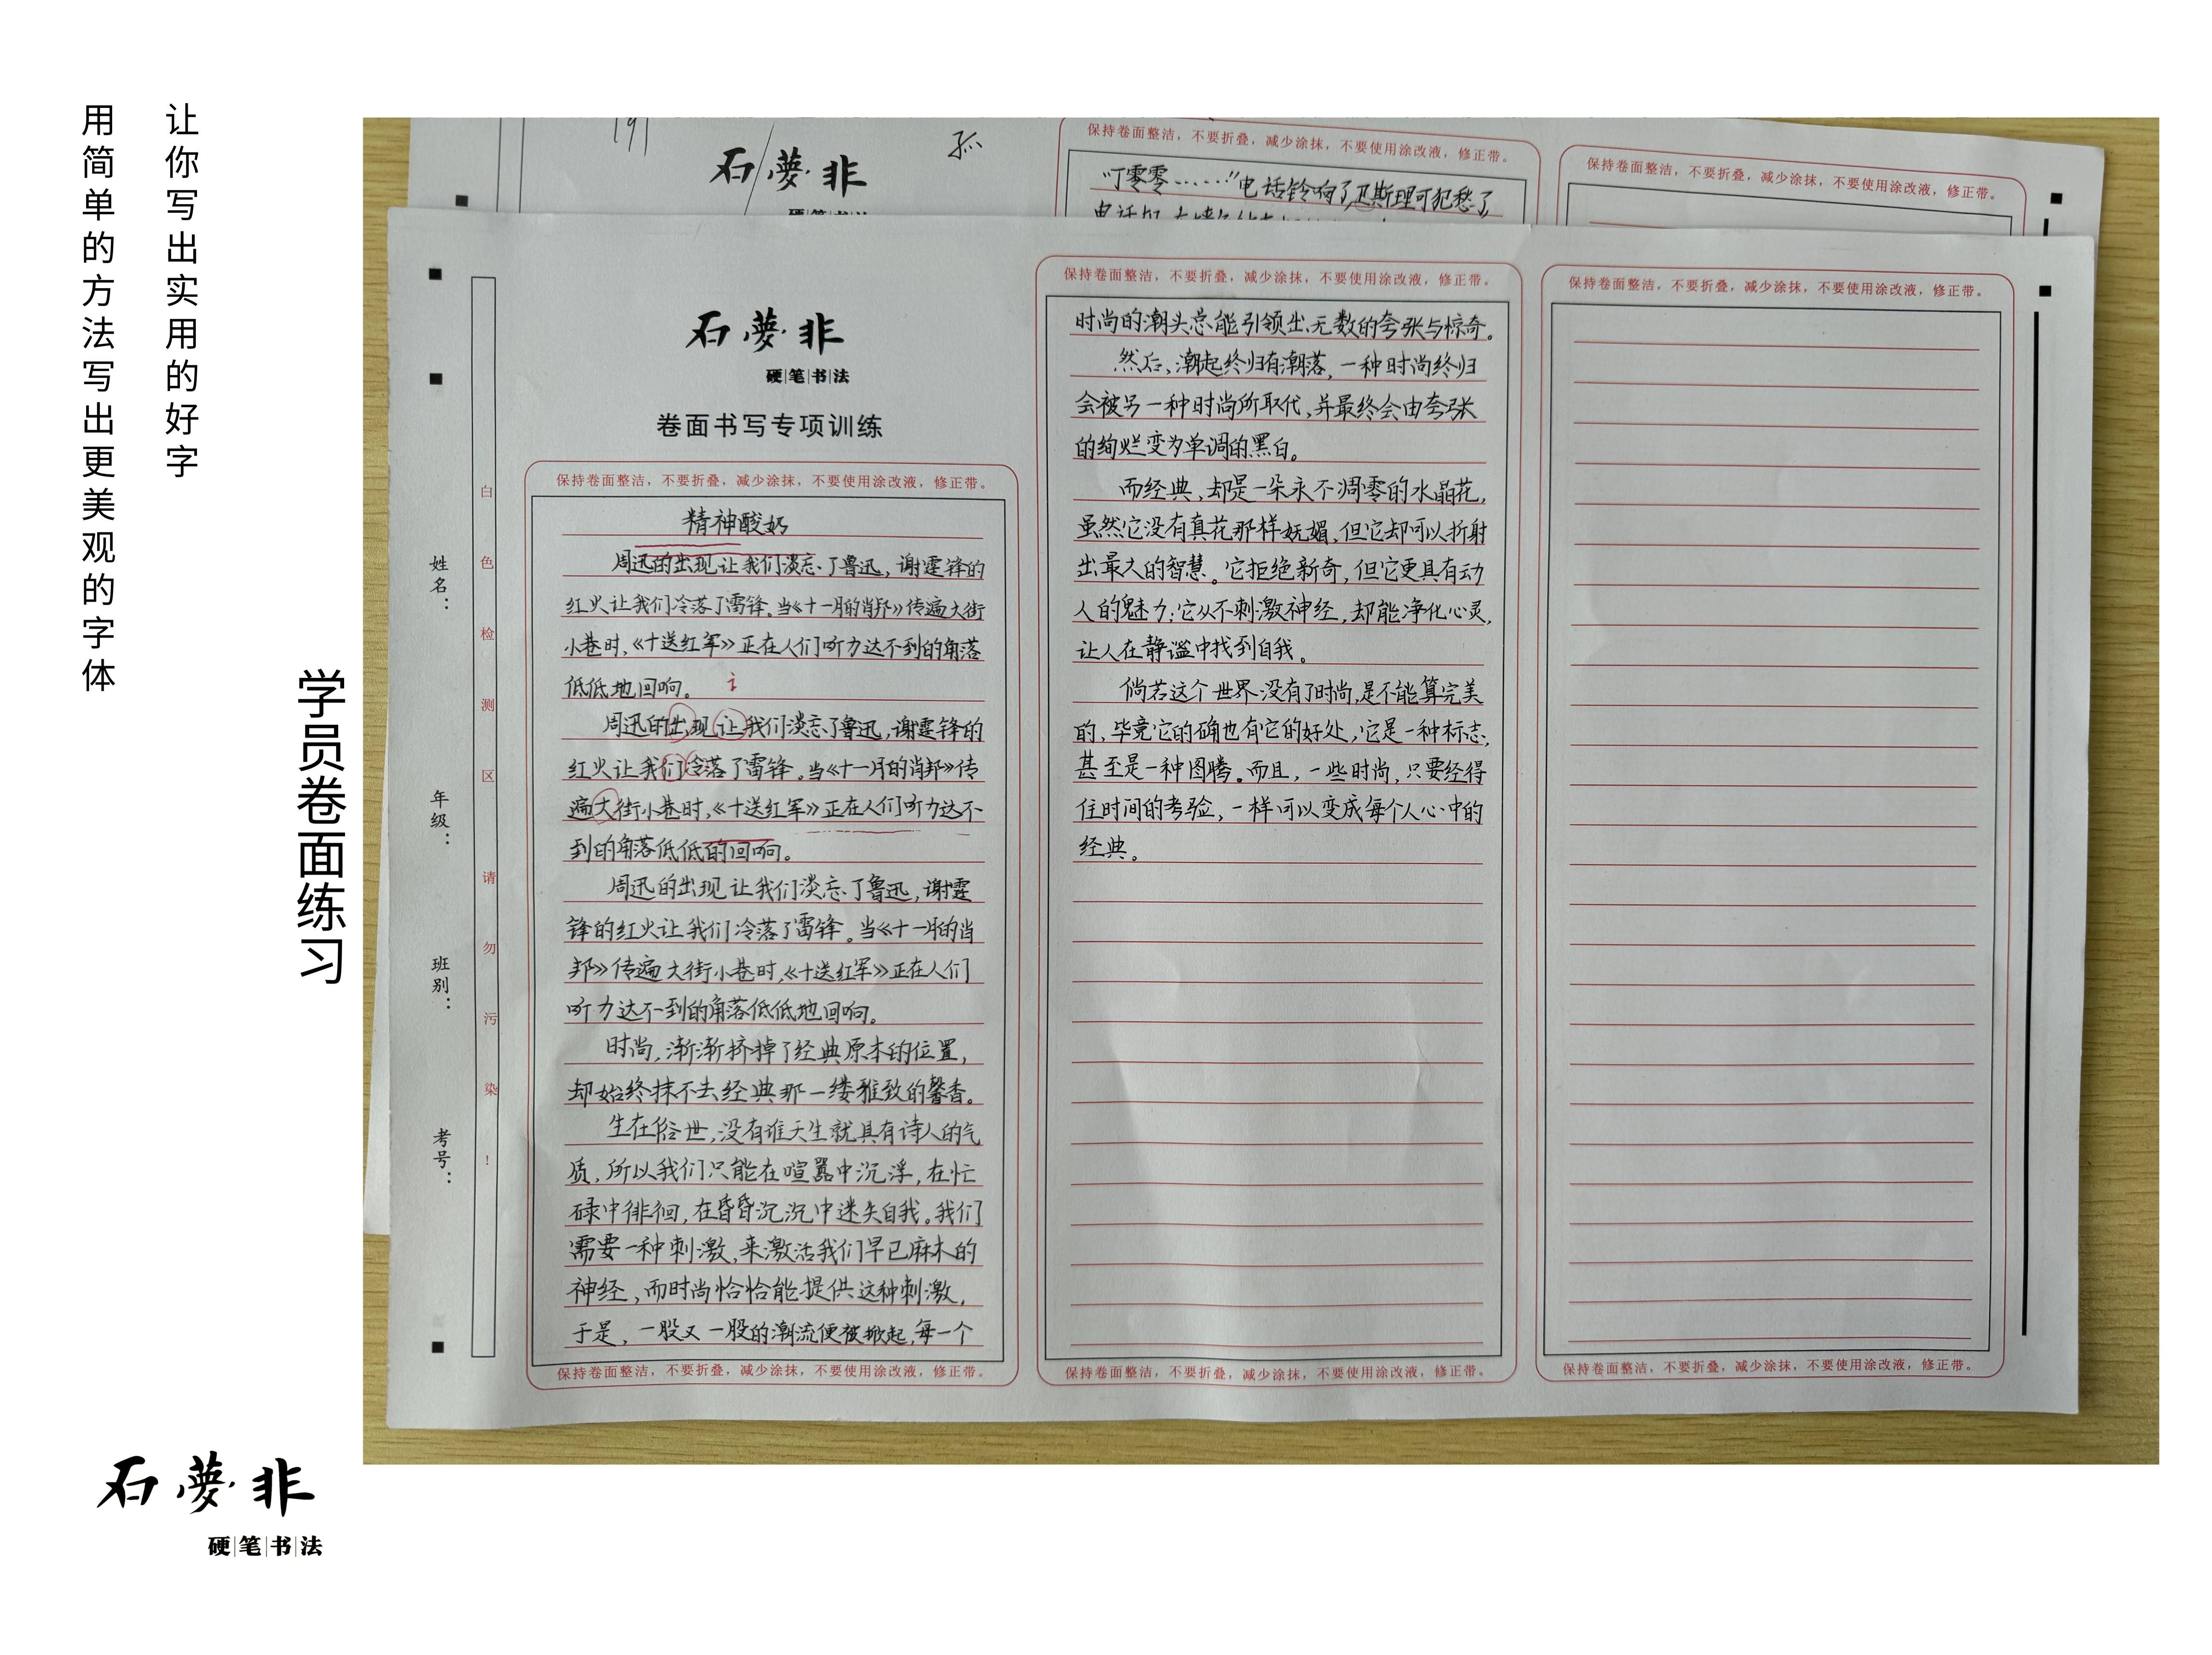 让你写出实用的好字
用简单的方法写出更美观的字体
学员卷面练习
石夢非
硬笔书法
石夢非
孤
保持卷面整洁，不要折叠，减少涂抹，不要使用涂改液，修正带。
“丁零零……”电话铃响了,卫斯理可犯愁了
保持卷面整洁，不要折叠，减少涂抹，不要使用涂改液，修正带。
白色检测区 请勿污染！
姓名：
年级：
班别：
考号：
石夢非
硬笔书法
卷面书写专项训练
保持卷面整洁，不要折叠，减少涂抹，不要使用涂改液，修正带。
精神酸奶
周迅的出现让我们淡忘了鲁迅，谢霆锋的
红火让我们冷落了雷锋。当《十一月的肖邦》传遍大街
小巷时，《十送红军》正在人们听力达不到的角落
低低地回响。
周迅的出现让我们淡忘了鲁迅，谢霆锋的
红火让我们冷落了雷锋。当《十一月的肖邦》传
遍大街小巷时，《十送红军》正在人们听力达不
到的角落低低的回响。
周迅的出现让我们淡忘了鲁迅，谢霆
锋的红火让我们冷落了雷锋。当《十一月的肖
邦》传遍大街小巷时，《十送红军》正在人们
听力达不到的角落低低地回响。
时尚，渐渐挤掉了经典原本的位置，
却始终抹不去经典那一缕雅致的馨香。
生在俗世，没有谁天生就具有诗人的气
质，所以我们只能在喧嚣中沉浮，在忙
碌中徘徊，在昏昏沉沉中迷失自我。我们
需要一种刺激，来激活我们早已麻木的
神经，而时尚恰恰能提供这种刺激，
于是，一股又一股的潮流便被掀起，每一个
保持卷面整洁，不要折叠，减少涂抹，不要使用涂改液，修正带。
保持卷面整洁，不要折叠，减少涂抹，不要使用涂改液，修正带。
时尚的潮头总能引领出无数的夸张与惊奇。
然后，潮起终归有潮落，一种时尚终归
会被另一种时尚所取代，并最终会由夸张
的绚烂变为单调的黑白。
而经典，却是一朵永不凋零的水晶花，
虽然它没有真花那样妩媚，但它却可以折射
出最大的智慧。它拒绝新奇，但它更具有动
人的魅力；它从不刺激神经，却能净化心灵，
让人在静谧中找到自我。
倘若这个世界没有了时尚，是不能算完美
的，毕竟它的确也有它的好处，它是一种标志，
甚至是一种图腾。而且，一些时尚，只要经得
住时间的考验，一样可以变成每个人心中的
经典。
保持卷面整洁，不要折叠，减少涂抹，不要使用涂改液，修正带。
保持卷面整洁，不要折叠，减少涂抹，不要使用涂改液，修正带。
保持卷面整洁，不要折叠，减少涂抹，不要使用涂改液，修正带。